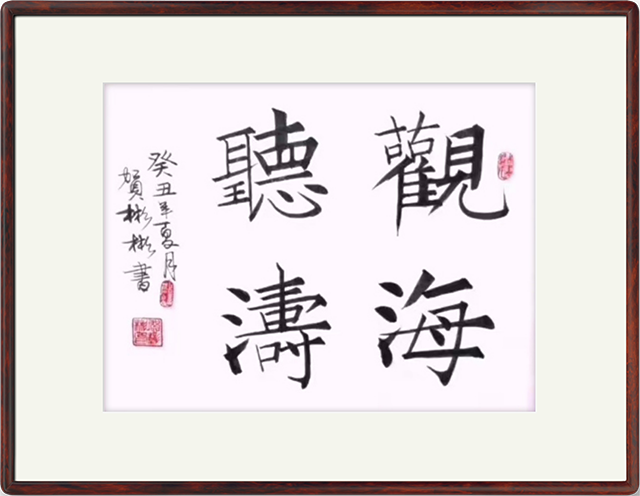 觀海
聽濤
癸丑年夏月
賀彬彬書